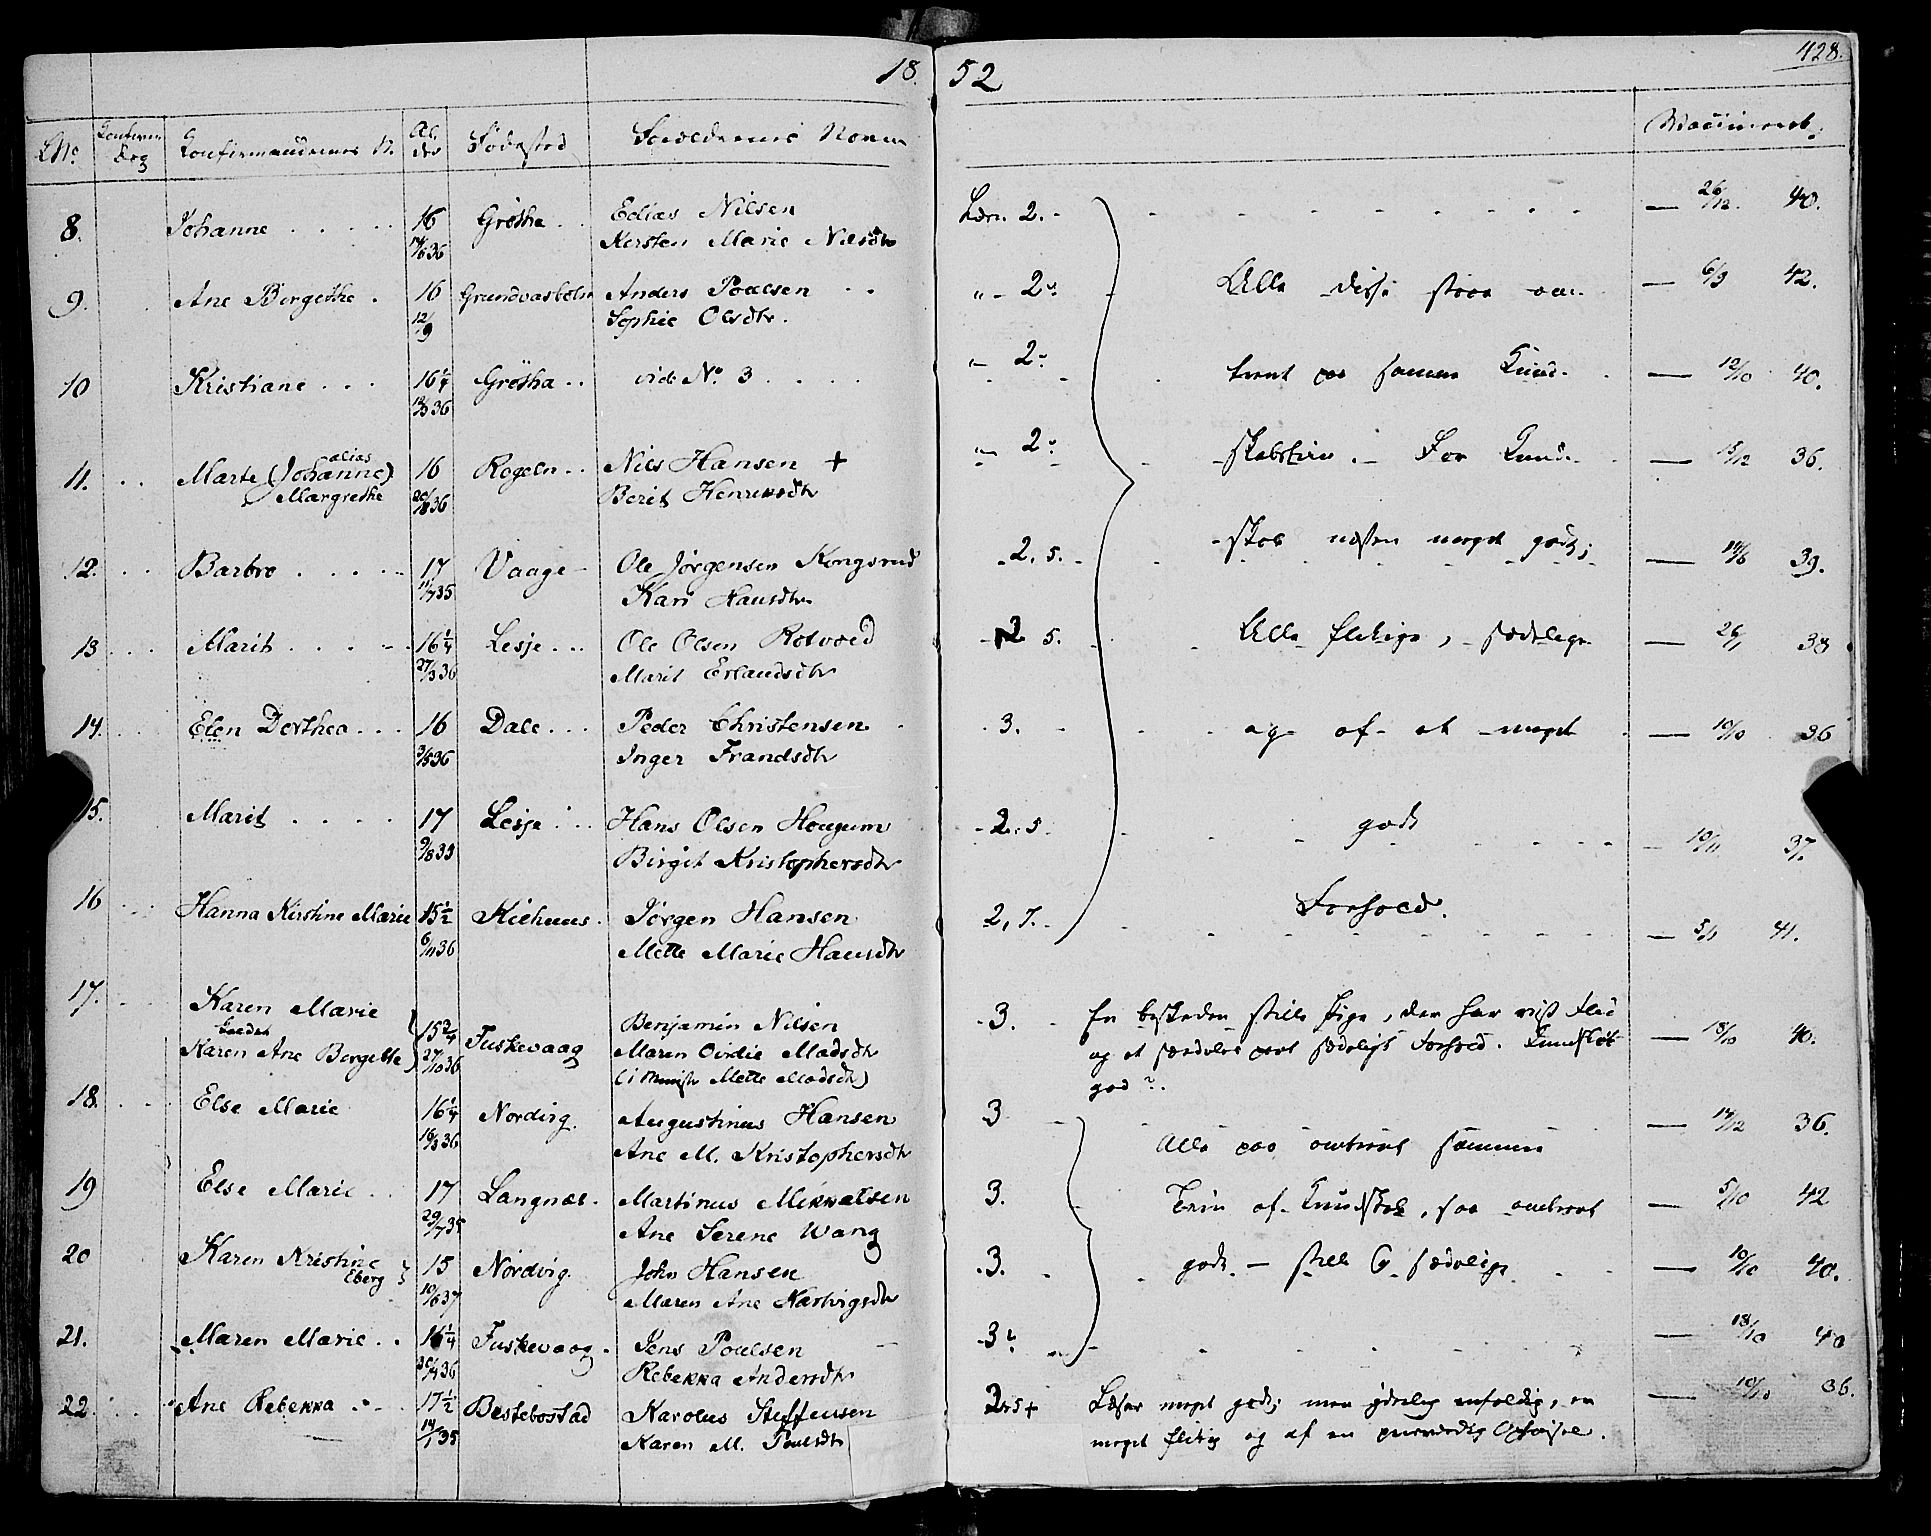 18 52
428.
L.No. Confirm. Dag Confirmandernes N. Al- der Fødested Forældrenes Navne Vaccinerede
8. Johanne . . . . . 16 Grøtha . . Edias Nilsen Lærn. 2. - — 26/12. 40.
17/6 36 Kersten Marie Nilsdtr
9. Ane Birgethe . 16 Anders Poulsen . . " - 2. Alle disse staae om- — 6/9 42.
12/9 Sophie Olsdtr.
10 Kristiane . . . 16 1/4 Grøtha . . vide No. 3 . . . . " 2. trent paa samme Kund- — 12/10 40.
36
alias
11. . . Marte (Johanne) 16 Rogeln . . Nils Hansen + " 2. skabstrin. - For Kund- — 15/12 36.
Margrethe 20/8 36 Berit Henriksdtr
12. . . Barbro . . . . 17 Vaage - Ole Jørgensen Kongsrud 2. 5. - skab næsten meget godt; — 39.
11/7 35 Kari Hansdtr
13 . . . Marit . . . . 16 1/4 Lesje . . . Ole Olsen Rolvoed - 2 5. Alle flitige, sædelige — 26/1 38
27/3 36 Marit Erlandsdtr
14. . . . Elen Dorthea . . . 16 Dale . . . Peder Christensen - 3. og af et meget — 10/10 36
3/5 36 Inger Frandsdtr
15. Marit . . . . 17 Lesje . . . Hans Olsen Hougum - 2. 5. godt — 10/11 37.
9/8 35 Birgit Kristophersdtr
16 . . . Hanna Kirstine Marie 15 1/2 Kiehuus . Jørgen Hansen 2, 7. Forhold. — 5/11 41.
6/11 36 Mette Marie Hansdtr
17. . . Karen Marie Benjamin Nilsen - 3. - En beskeden stille Pige, der har vist Flid
15 3/4 Fuskevaag
Karen Ane Bergette) 27/10 36 Maren Oirdie Madsdtr og et særdeles sædeligt Forhold. — 18/10 40.
(i Mette Madsdtr) god?.
18. . . Else Marie 16 1/4 Nordvig. Augustinus Hansen 3 Alle paa omtrent samme — 14/12 36.
16/3 36 Ane M. Kristophersdtr
19 Else Marie . . 17 Langnæs. Martinus Mikkalsen 3. Trin af Kundskab, saa omtrent — 5/10 42
29/7 35 Ane Serene Wang
20 Karen Kristine Eberg } 15 Nordvig. John Hansen - 3. godt - stille & sædelige — 10/10 40.
10/6 37 Maren Ane Hartvigsdtr
21. Maren Marie . . 16 1/4 Fuskevaag . Jens Poulsen - 3. — 18/10 40
30/4 36 Rebekka Andersdtr
22 . . . Ane Rebekka . - 17 1/2 Bestebostad Karolus Steffensen 2. 5 + Læser meget godt; men yderlig enfoldig, en — 10/10 36.
14/1 35 Karen M. Poulsdtr meget flitig og af en prisværdig Opførsel.